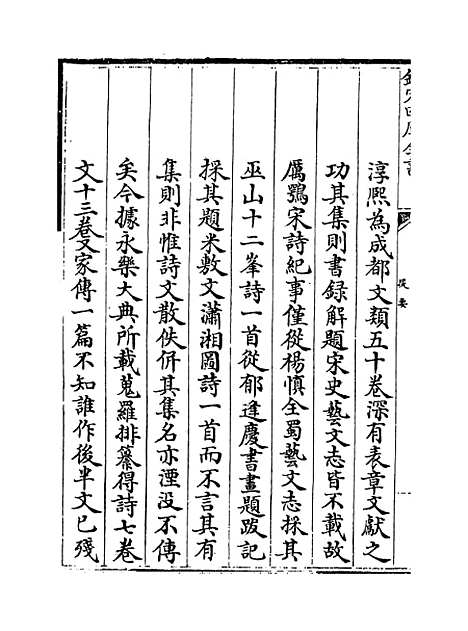 欽定四庫全書
提要
淳熙為成都文類五十卷深有表章文獻之
功其集則書録解題宋史藝文志皆不載故
厲鶚宋詩紀事僅從楊慎全蜀藝文志採其
巫山十二峯詩一首從郁逢慶書畫題跋記
採其題米敷文瀟湘圖詩一首而不言其有
集則非惟詩文散佚併其集名亦湮没不傳
矣今據永樂大典所載蒐羅排纂得詩七卷
文十三卷又家傳一篇不知誰作後半文已殘